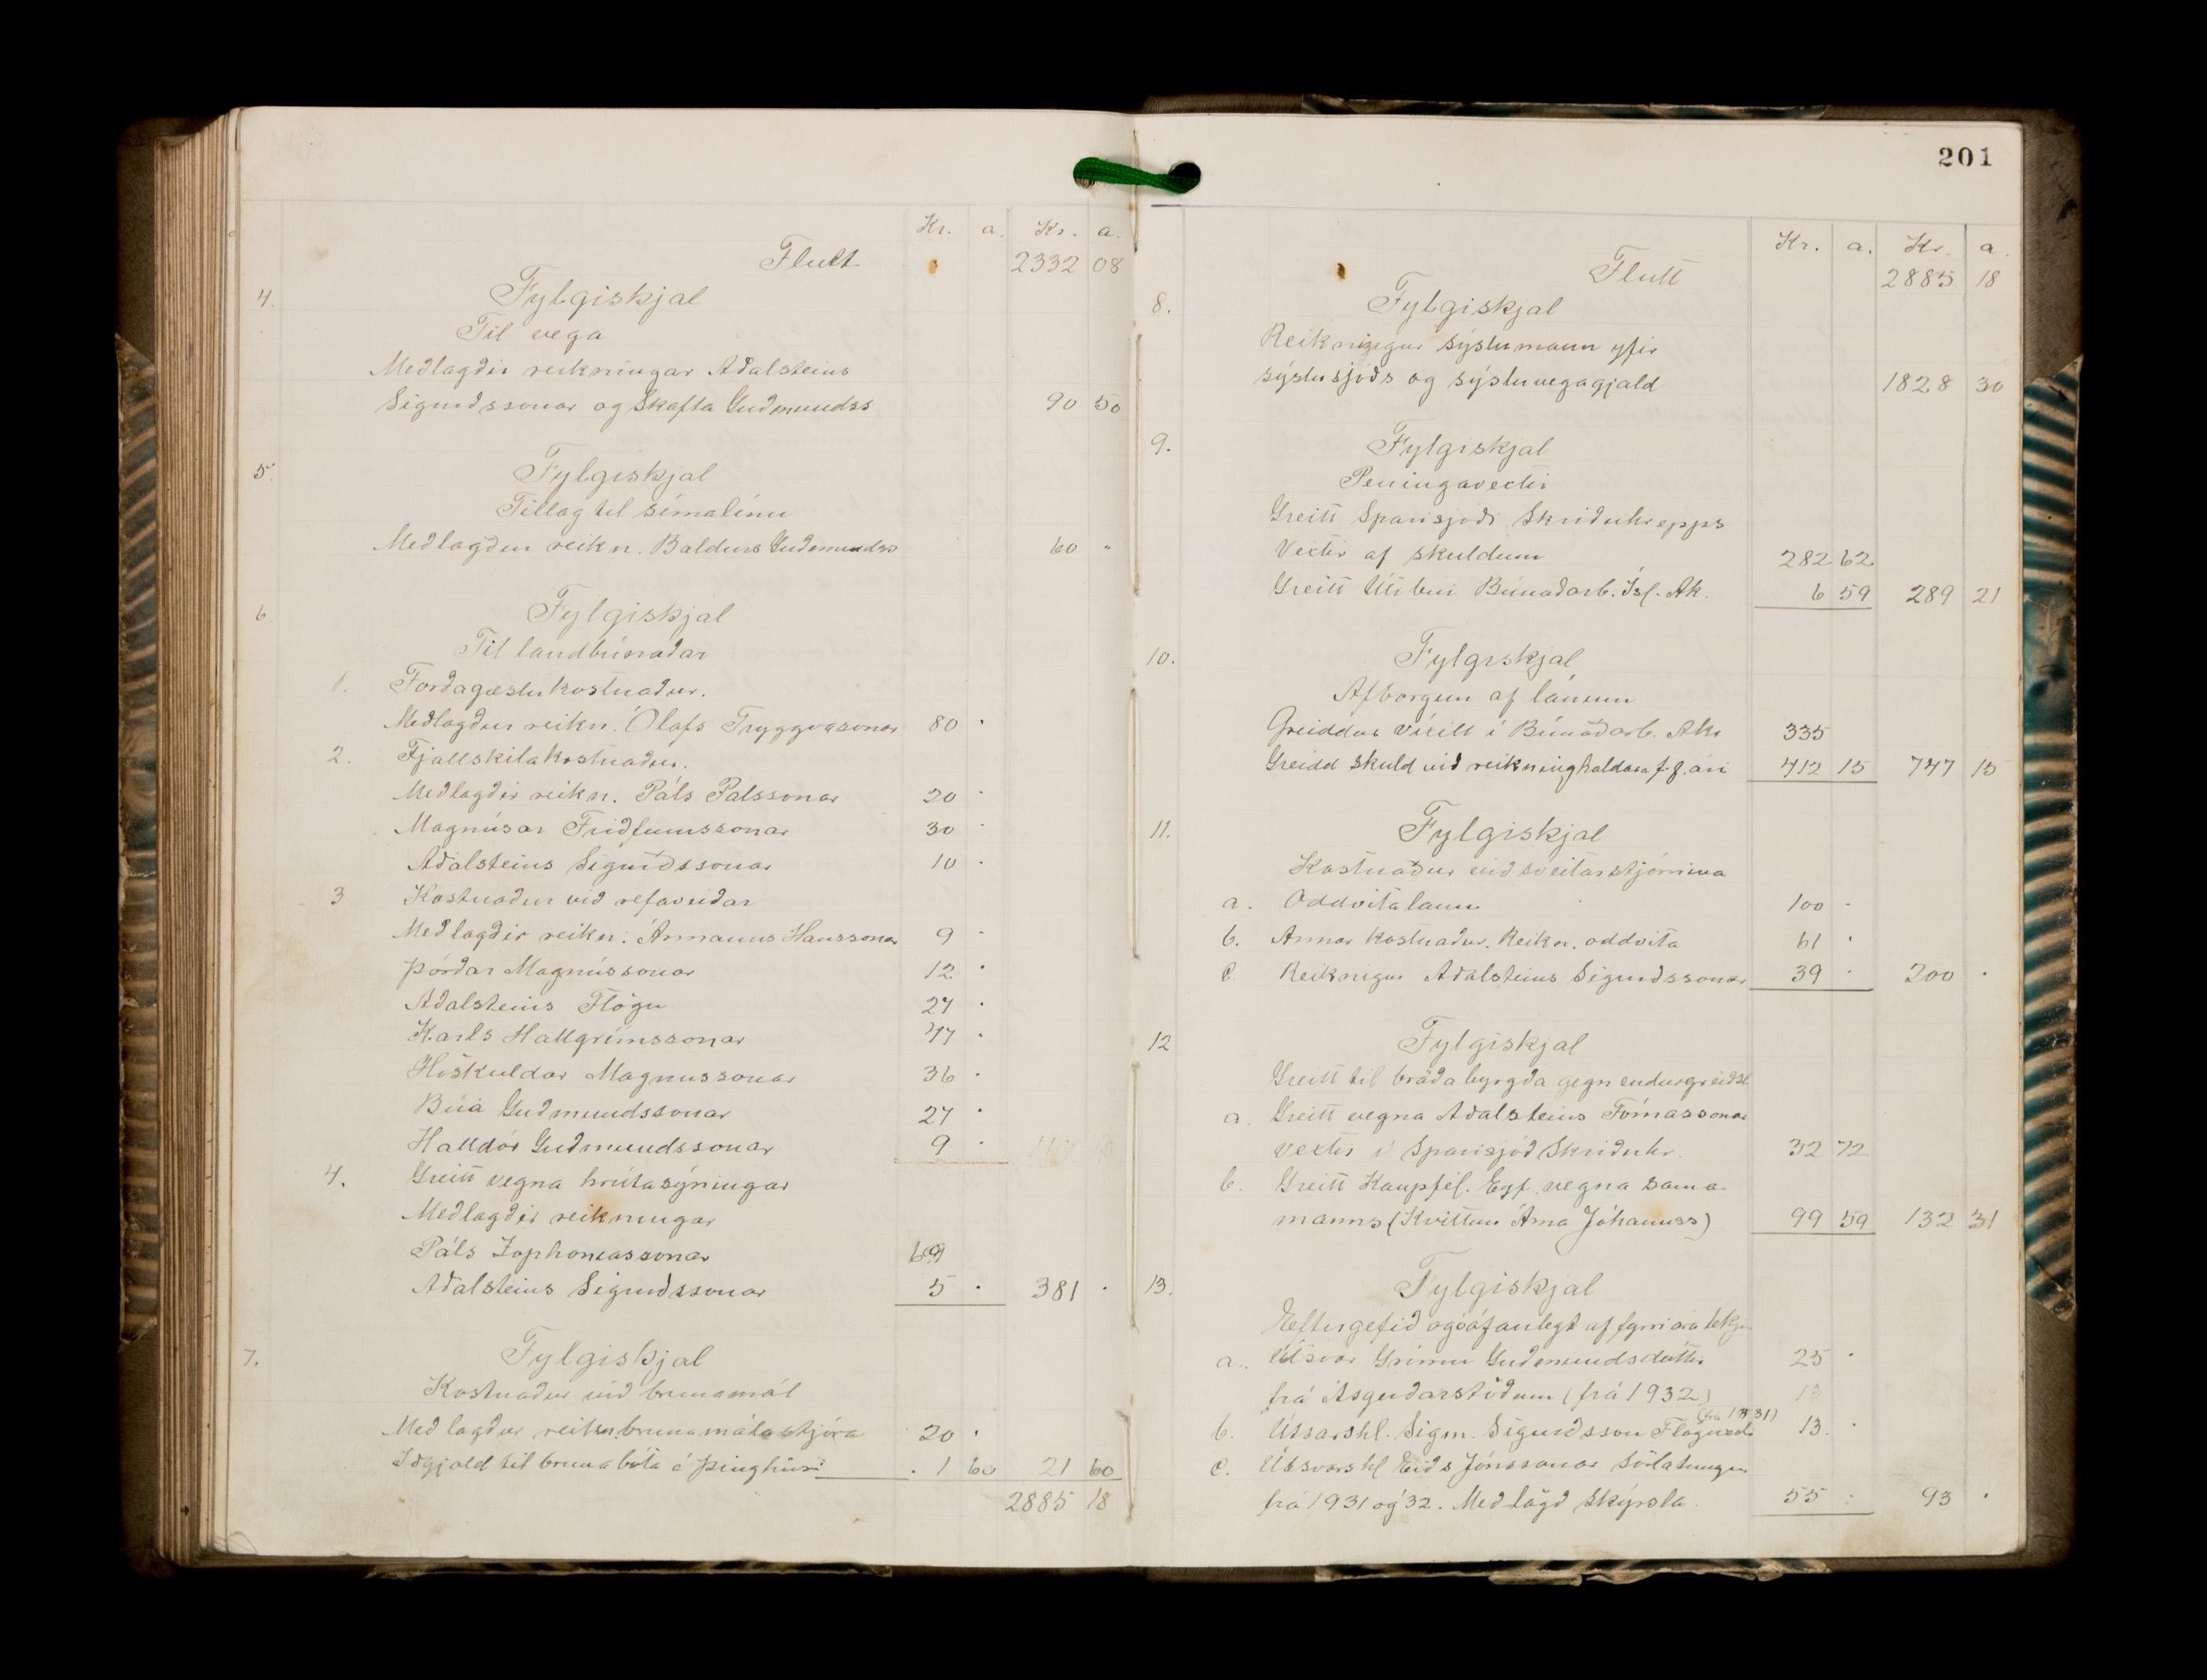 Kr. a. Kr. a.
Flutt 2332 08
4. Fylgiskjal
Til vega
Meðlagðir reikningar Aðalsteins
Sigurðssonar og Skafta Guðmundss 90 50
5. Fylgiskjal
Tillag til símalínu
Meðlagður reikn. Baldurs Guðmundss 60 "
6 Fylgiskjal
Til landbúnaðar
1. Forðagæslukostnaður.
Meðlagður reikn. Ólafs Tryggvasonar 80 ·
2. Fjallskilakostnaður.
Meðlagðir reikn. Páls Pálssonar 20 ·
Magnúsar Friðfinnssonar 30 ·
Aðalsteins Sigurðssonar 10 ·
3 Kostnaður við refaveiðar
Meðlagðir reikn. Ármanns Hanssonar 9 ·
Þórðar Magnússonar 12 ·
Aðalsteins Flögu 27 ·
Karls Hallgrímssonar 47 ·
Höskuldar Magnussonar 36 ·
Búa Guðmundssonar 27 ·
Halldór Guðmundssonar 9 ·
4. Greitt vegna hrútasýningar
Meðlagðir reikningar
Páls Zophoniassonar 69
Aðalsteins Sigurðssonar 5 · 381 ·
7. Fylgiskjal
Kostnaður við brunamál
Meðlagður reikn. brunamálastjóra 20 ·
Iðgjald til brunabóta á þinghúsi 1 60 21 60
2885 18
201
Kr. a. Kr. a.
Flutt 2885 18
8. Fylgiskjal
Reikningur sýslumann yfir
sýslusjóðs og sýsluvegagjald 1828 30
9. Fylgiskjal
Peningavextir
Greitt Sparisjóði Skriðuhrepps
Vextir af skuldum 282 62
Greitt Útibúi Búnaðarb. Ísl. Ak. 6 59 289 21
10. Fylgiskjal
Afborgun af lánum
Greiddur víxill í Búnaðarb. Ak. 335
Greidd skuld við reikninghaldara f. f. ári 412 15 747 15
11. Fylgiskjal
Kostnaður við sveitarstjórnina
a. Oddvitalaun 100 ·
b. Annar kostnaður. Reikn. oddvita 61 ·
c. Reiknigur Aðalsteins Sigurðssonar 39 · 200 ·
12 Fylgiskjal
Greitt til bráðabyrgða gegn endurgreiðsl
a. Greitt vegna Aðalsteins Tómassonar
vextir í Sparisjóð Skriðuhr. 32 72
b. Greitt Kaupfél. Eyf. vegna sama
manns (Kvittun Árna Jóhannss) 99 59 132 31
13. Fylgiskjal
Eftirgefið og óáfanlegt af fyrri ára tekjum
a. Útsvar Grímu Guðmundsdóttir 25 ·
frá Ásgerðarstöðum (frá 1932)
b. Útsvarshl. Sigm. Sigurðsson Flöguseli (frá 1931) 13. ·
c. Útsvarshl Eiðs Jónssonar Sörlatungu
frá 1931 og 32. Meðlögð skýrsla. 55 : 93 ·